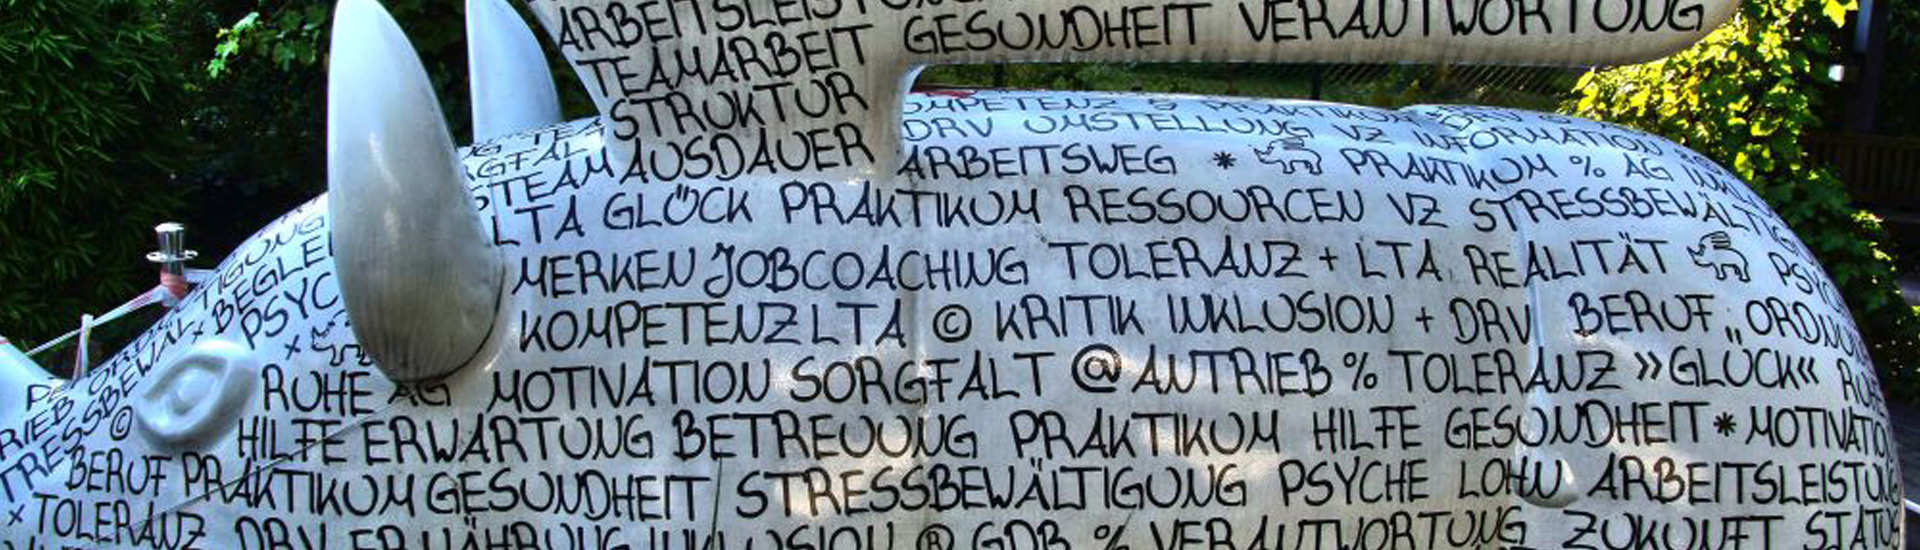 ARBEITSLEISTUNG
TEAMARBEIT GESUNDHEIT VERANTWORTUNG
STRUKTUR
KOMPETENZ & PRAKTIKUM
DRV UMSTELLUNG VZ INFORMATION
TEAM AUSDAUER ARBEITSWEG * PRAKTIKUM % AG
LTA GLÜCK PRAKTIKUM RESSOURCEN VZ STRESSBEWÄLTIGUNG
MERKEN JOBCOACHING TOLERANZ + LTA REALITÄT
PSYC
× KOMPETENZ LTA © KRITIK INKLUSION + DRV BERUF „ORDNU
RUHE AG MOTIVATION SORGFALT @ ANTRIEB % TOLERANZ »GLÜCK« RUHE
© HILFE ERWARTUNG BETREUUNG PRAKTIKUM HILFE GESUNDHEIT * MOTIVATION
BERUF PRAKTIKUM GESUNDHEIT STRESSBEWÄLTIGUNG PSYCHE LOHN ARBEITSLEISTUNG
× TOLERANZ DRV ERNÄHRUNG INKLUSION ® GDB % VERANTWORTUNG ZUKUNFT STATUS